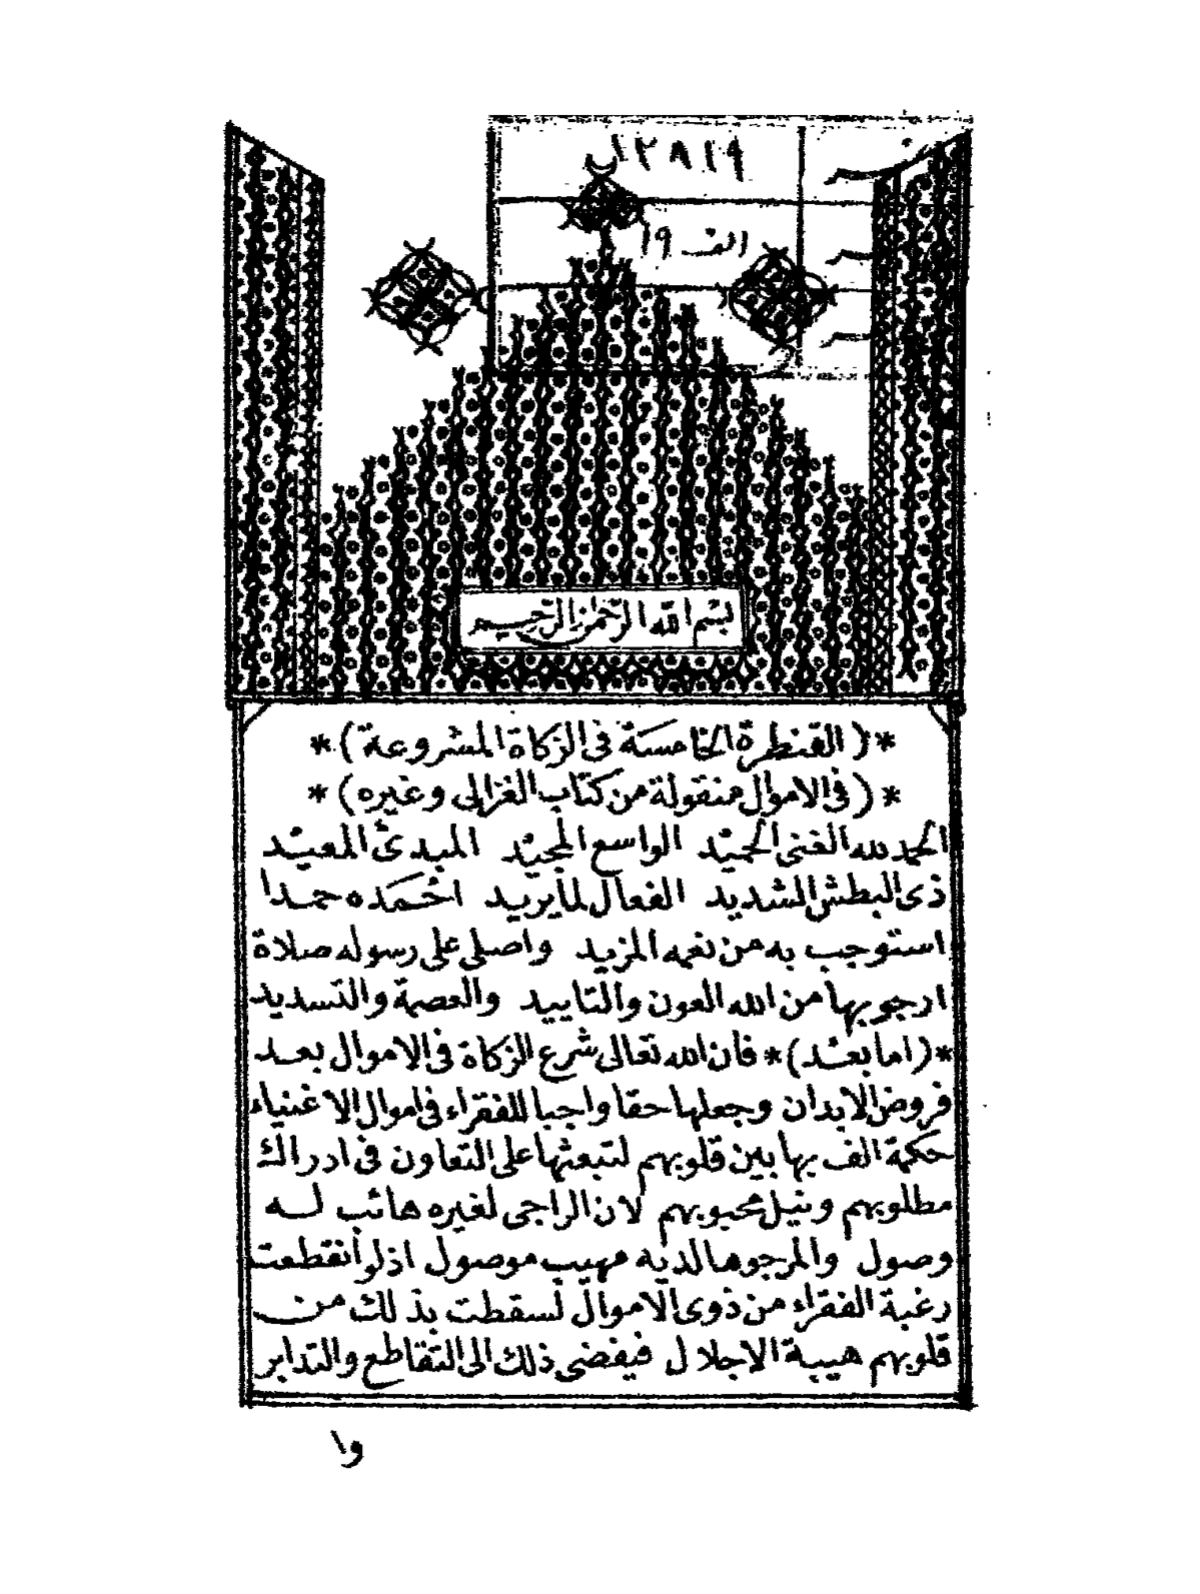 ٢٨١٩
الف ١٩
بسم الله الرحمن الرحيم
*( القنطرة الخامسة فى الزكاة المشروعة )*
*( فى الاموال منقولة من كتاب الغزالى وغيره )*
الحمد لله الغنى الحميد الواسع المجيد المبدئ المعيد
ذى البطش الشديد الفعال لما يريد احمده حمدا
استوجب به من نعمه المزيد واصلى على رسوله صلاة
ارجو بها من الله العون والتاييد والعصمة والتسديد
*( اما بعد )* فان الله تعالى شرع الزكاة فى الاموال بعد
فروض الابدان وجعلها حقا واجبا للفقراء فى اموال الاغنياء
حكمة الف بها بين قلوبهم لتبعثها على التعاون فى ادراك
مطلوبهم ونيل محبوبهم لان الراجى لغيره هائب له
وصول والمرجو ها لديه مهيب موصول اذ لو انقطعت
رغبة الفقراء من ذوى الاموال لسقطت بذلك من
قلوبهم هيبة الاجلال فيفضى ذلك الى التقاطع والتدابر
وا